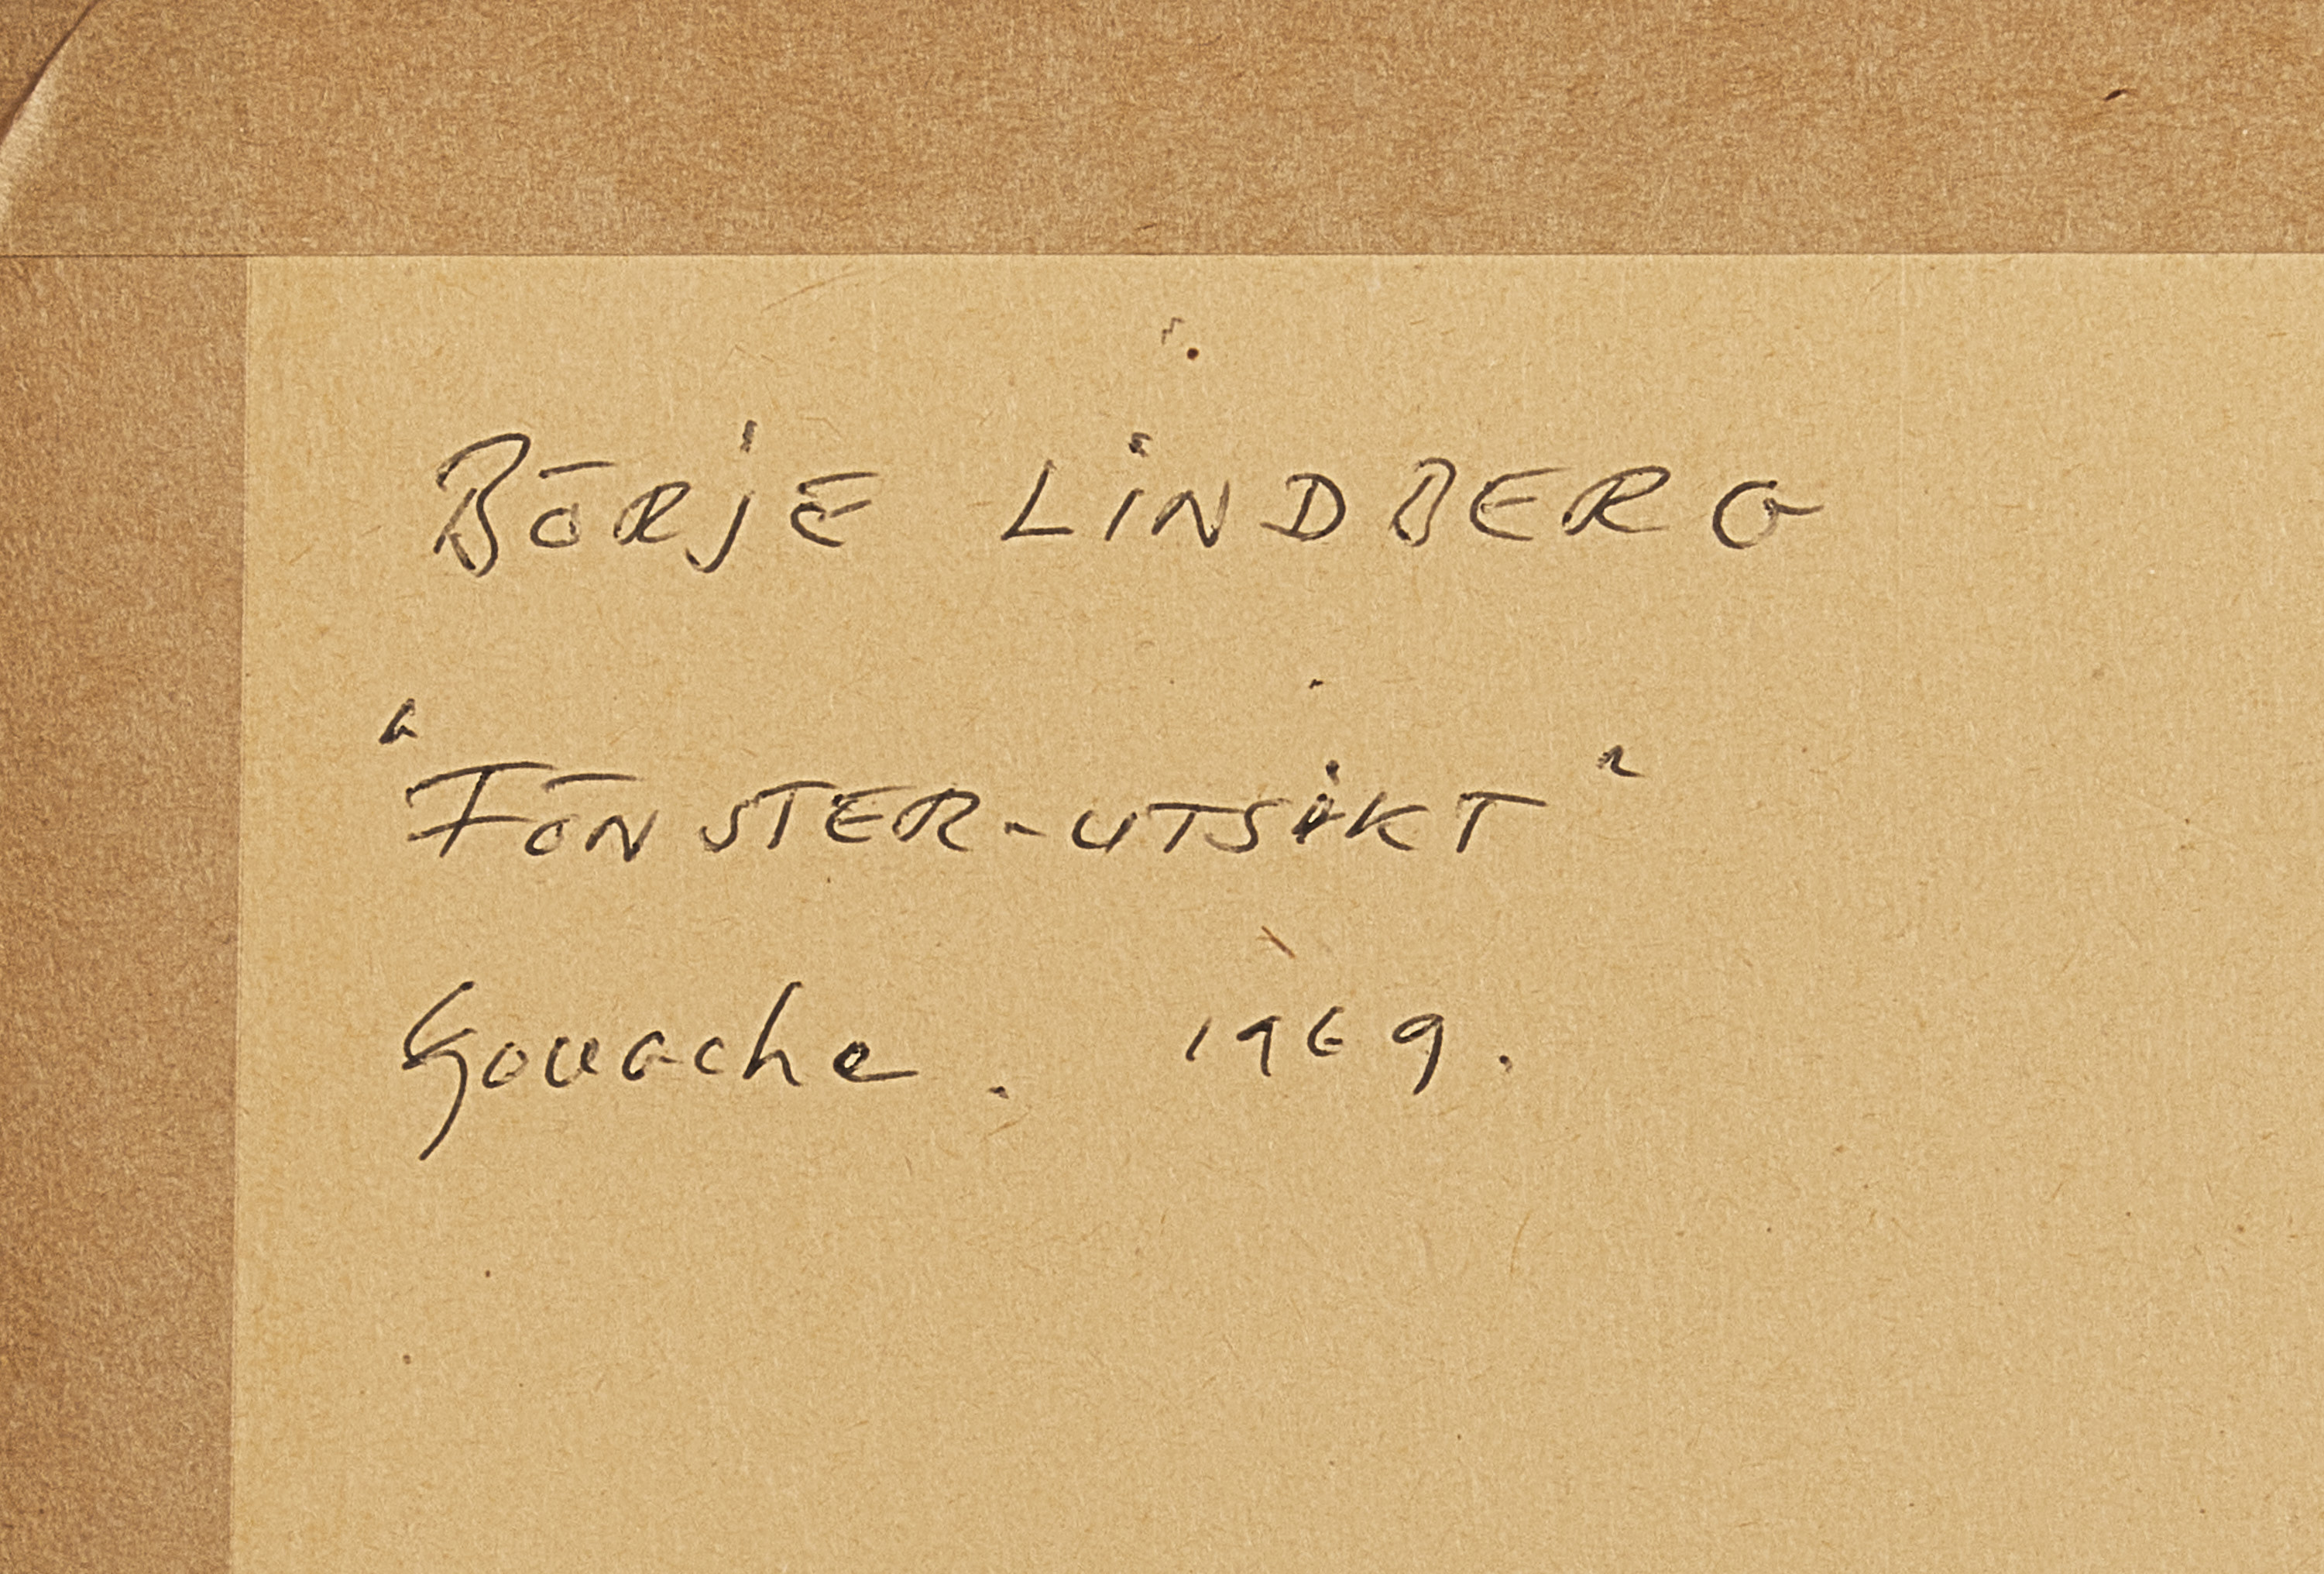 BÖRjE LiNDBERG
"FÖNSTER-UTSiKT"
Gouache. 1969.